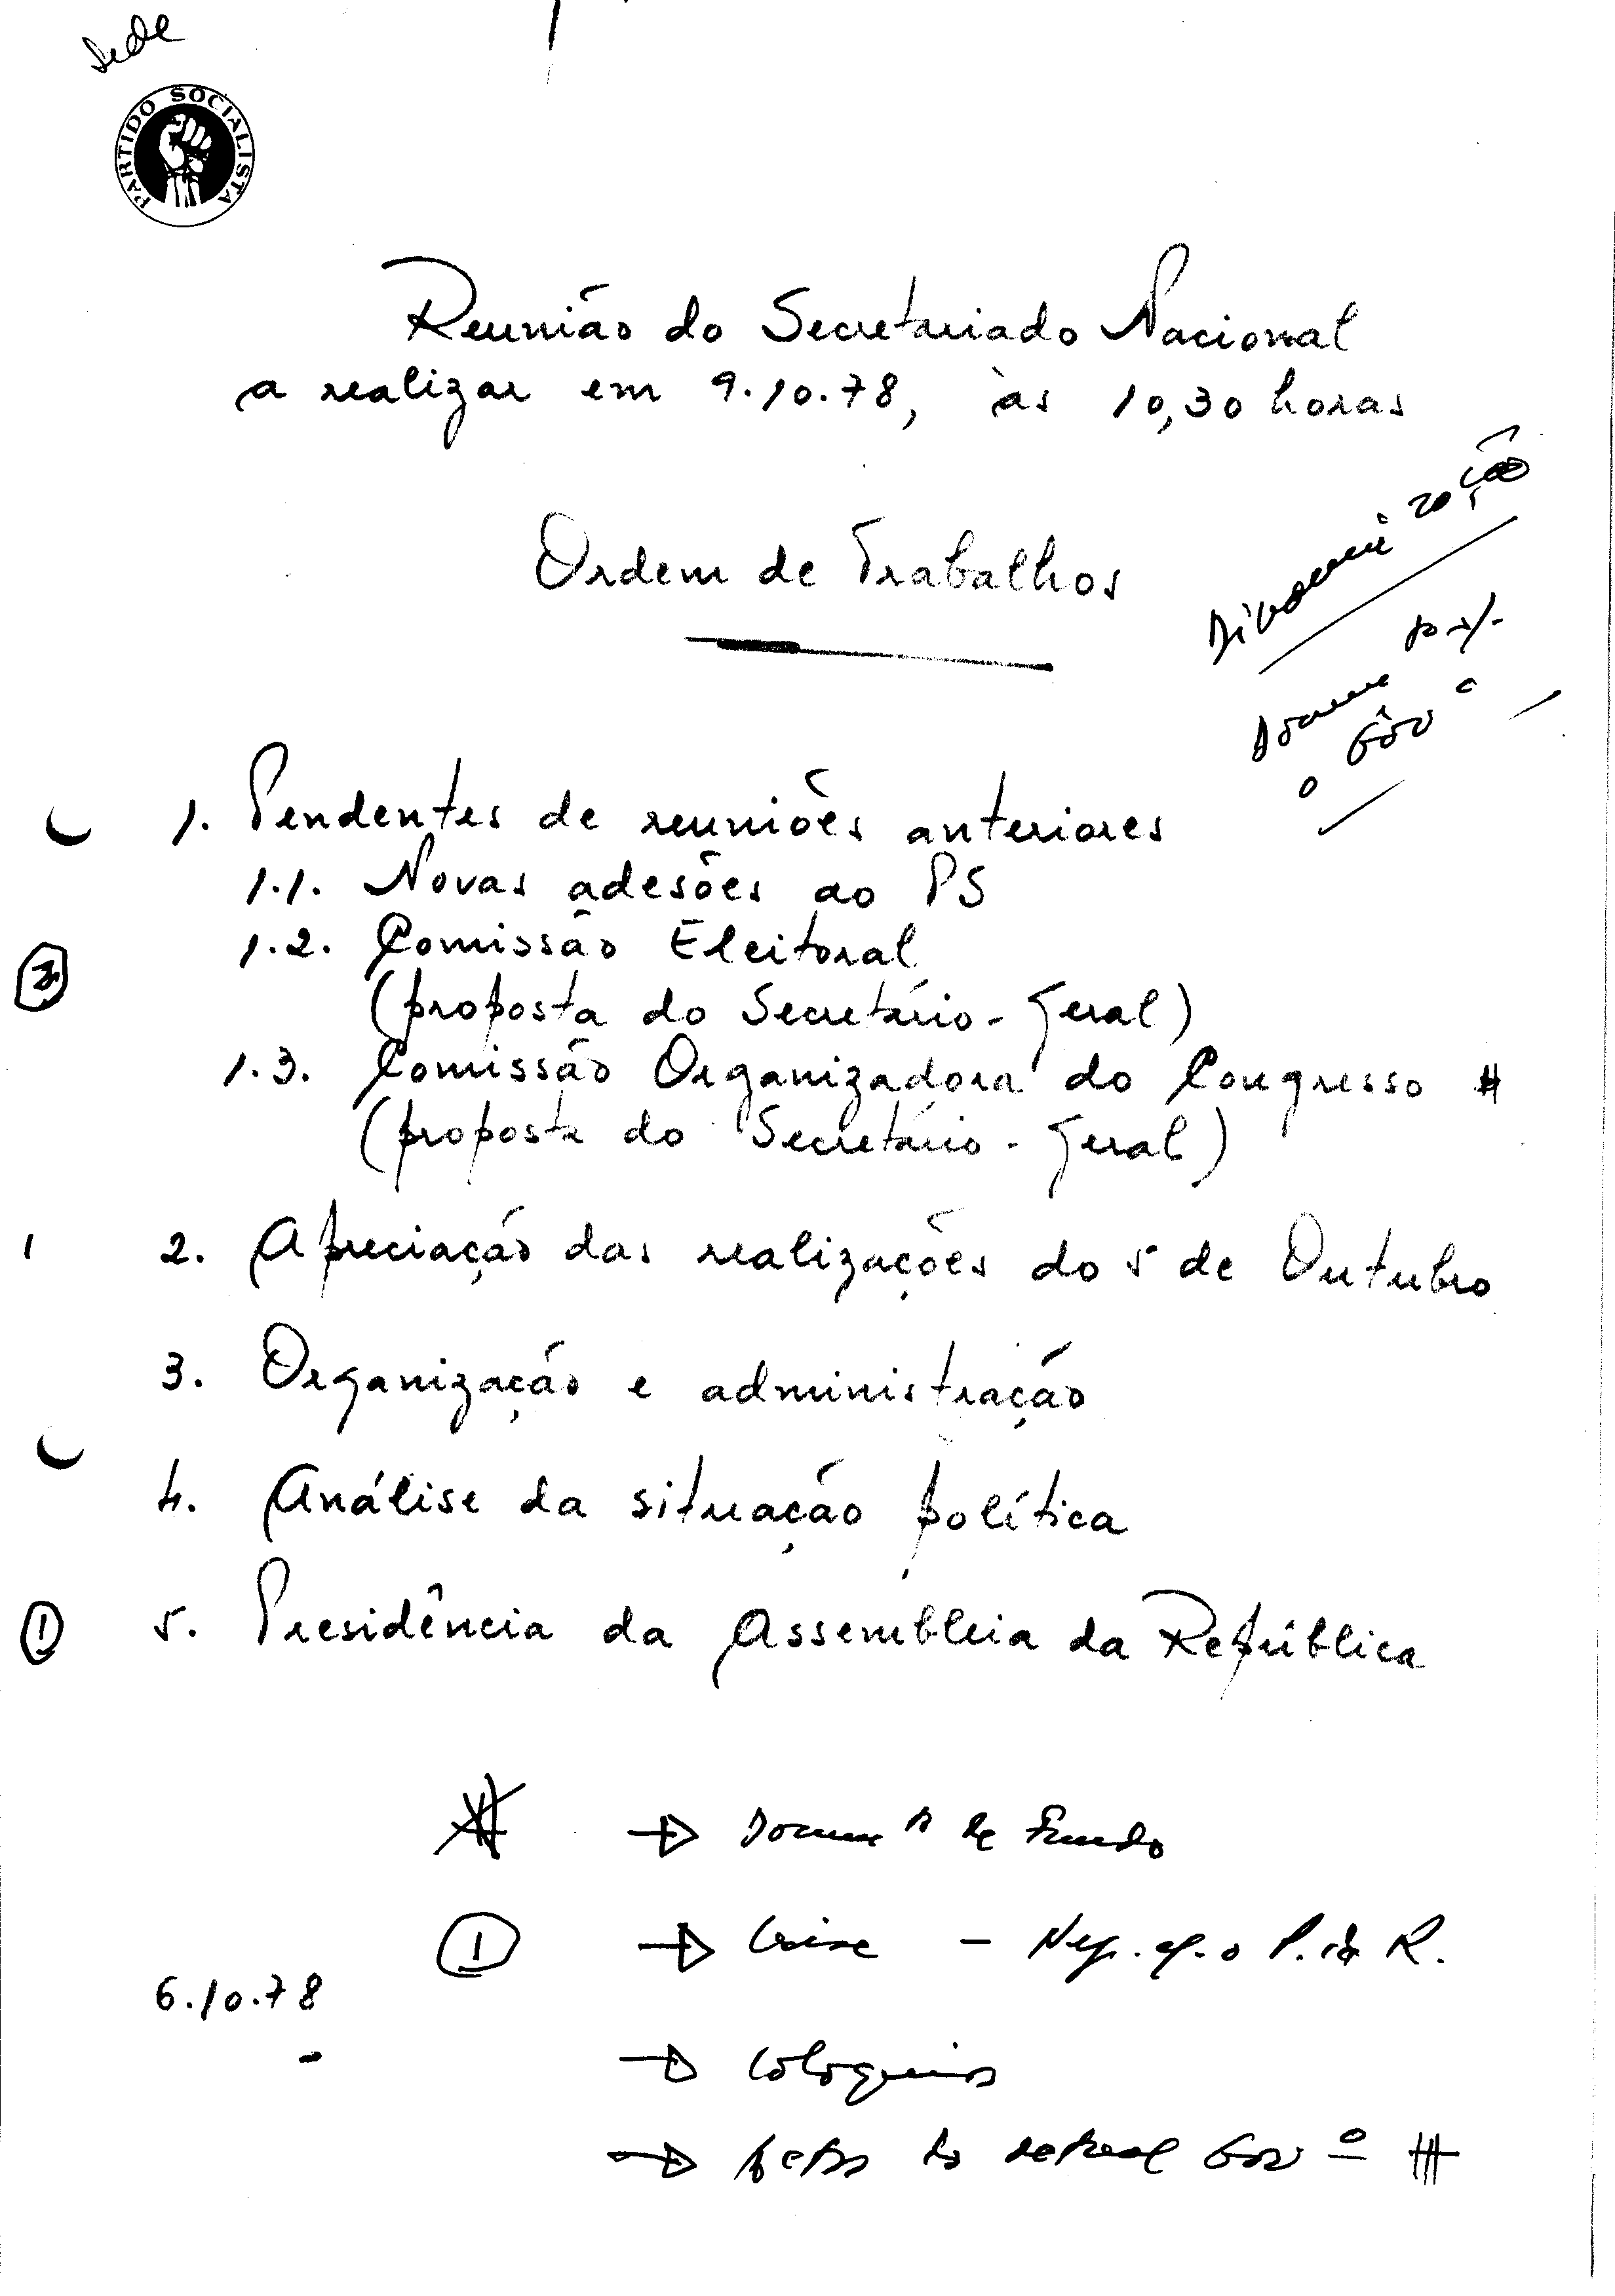 Sede
PARTIDO SOCIALISTA
Reunião do Secretariado Nacional
a realizar em 9.10.78, às 10,30 horas
Ordem de Trabalhos
1. Pendentes de reuniões anteriores
1.1. Novas adesões ao PS
1.2. Comissão Eleitoral
(proposta do Secretário-Geral)
1.3. Comissão Organizadora do Congresso #
(proposta do Secretário-Geral)
1 2. Apreciação das realizações do 5 de Outubro
3. Organização e administração
4. Análise da situação política
① 5. Presidência da Assembleia da República
→ de Fundo
① → Crise - P. da R.
6.10.78
→ Coloquios
→ Gov º